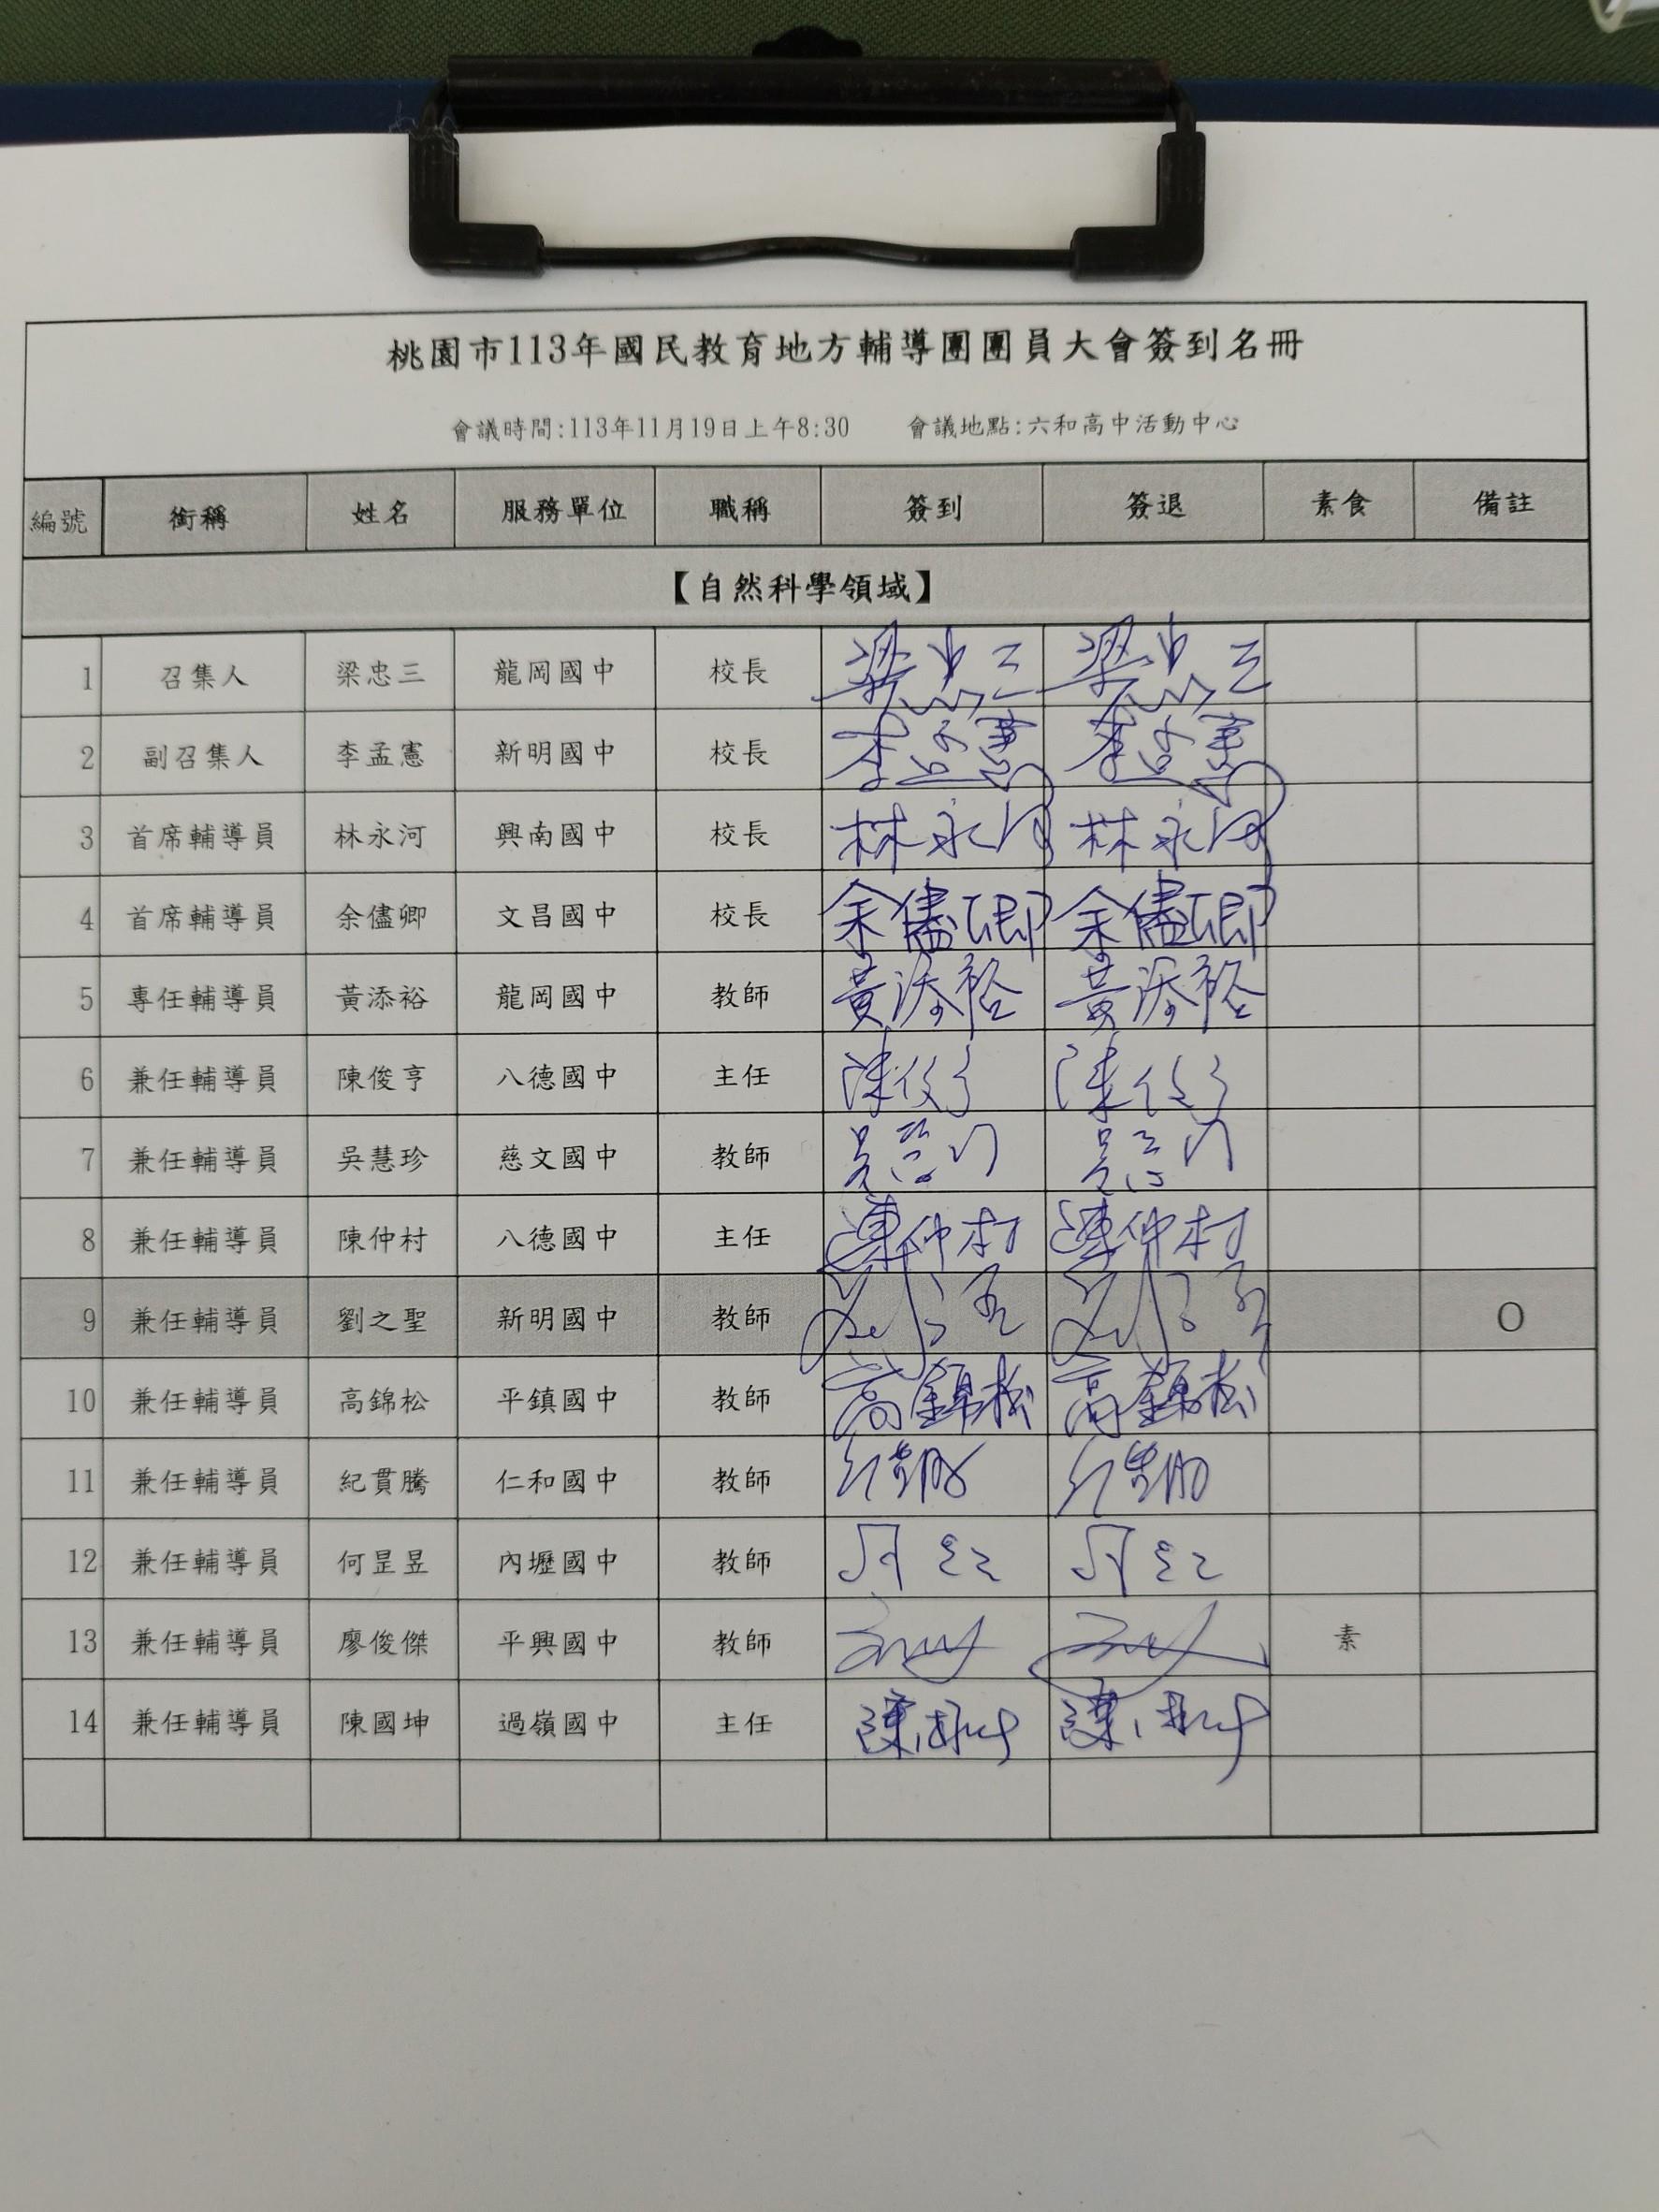 桃園市113年國民教育地方輔導團團員大會簽到名冊
會議時間:113年11月19日上午8:30 會議地點:六和高中活動中心
編號 銜稱 姓名 服務單位 職稱 簽到 簽退 素食 備註
【自然科學領域】
1 召集人 梁忠三 龍岡國中 校長 梁忠三 梁忠三
2 副召集人 李孟憲 新明國中 校長 李孟憲 李孟憲
3 首席輔導員 林永河 興南國中 校長 林永河 林永河
4 首席輔導員 余儘卿 文昌國中 校長 余儘卿 余儘卿
5 專任輔導員 黃添裕 龍岡國中 教師 黃添裕 黃添裕
6 兼任輔導員 陳俊亨 八德國中 主任 陳俊亨 陳俊亨
7 兼任輔導員 吳慧珍 慈文國中 教師
8 兼任輔導員 陳仲村 八德國中 主任 陳仲村 陳仲村
9 兼任輔導員 劉之聖 新明國中 教師 O
10 兼任輔導員 高錦松 平鎮國中 教師 高錦松 高錦松
11 兼任輔導員 紀貫騰 仁和國中 教師
12 兼任輔導員 何昰昱 內壢國中 教師
13 兼任輔導員 廖俊傑 平興國中 教師 素
14 兼任輔導員 陳國坤 過嶺國中 主任 陳國坤 陳國坤